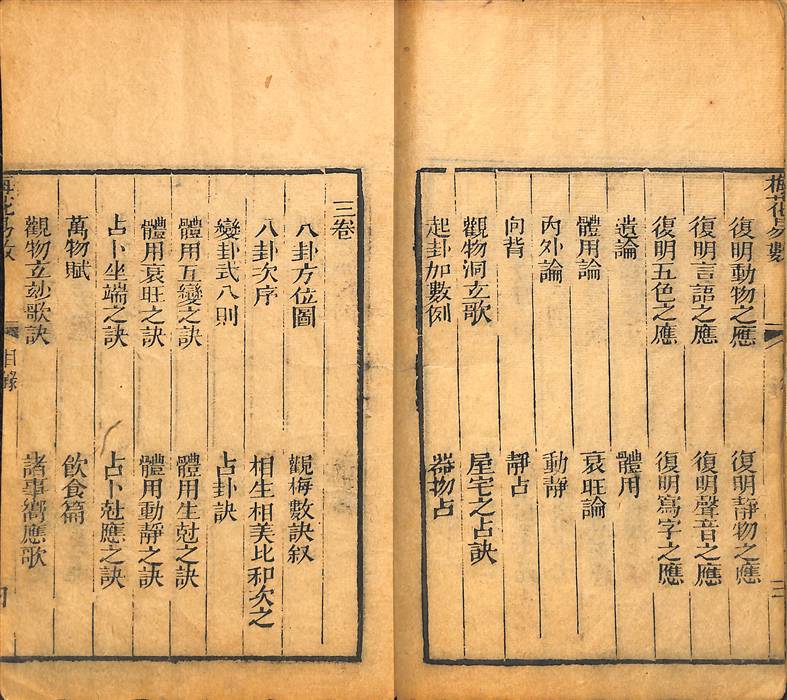 梅花易數
復明動物之應 復明靜物之應
復明言語之應 復明聲音之應
復明五色之應 復明寫字之應
遺論 體用
體用論 衰旺論
內外論 動靜
向背 靜占
觀物洞玄歌 屋宅之占訣
起卦加數例 器物占
三卷
八卦方位圖 觀梅數訣叙
八卦次序 相生相美比和次之
變卦式八則 占卦訣
體用互變之訣 體用生尅之訣
體用衰旺之訣 體用動靜之訣
占卜坐端之訣 占卜尅應之訣
萬物賦 飲食篇
觀物玄玅歌訣 諸事嚮應歌
梅花易數 目錄